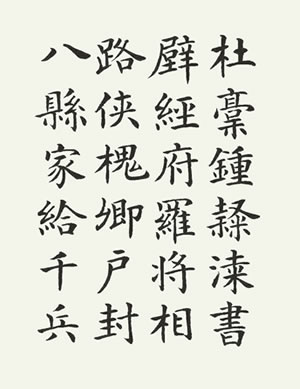 杜稾鍾隸漆書
壁經府羅將相
路俠槐卿戶封
八縣家給千兵